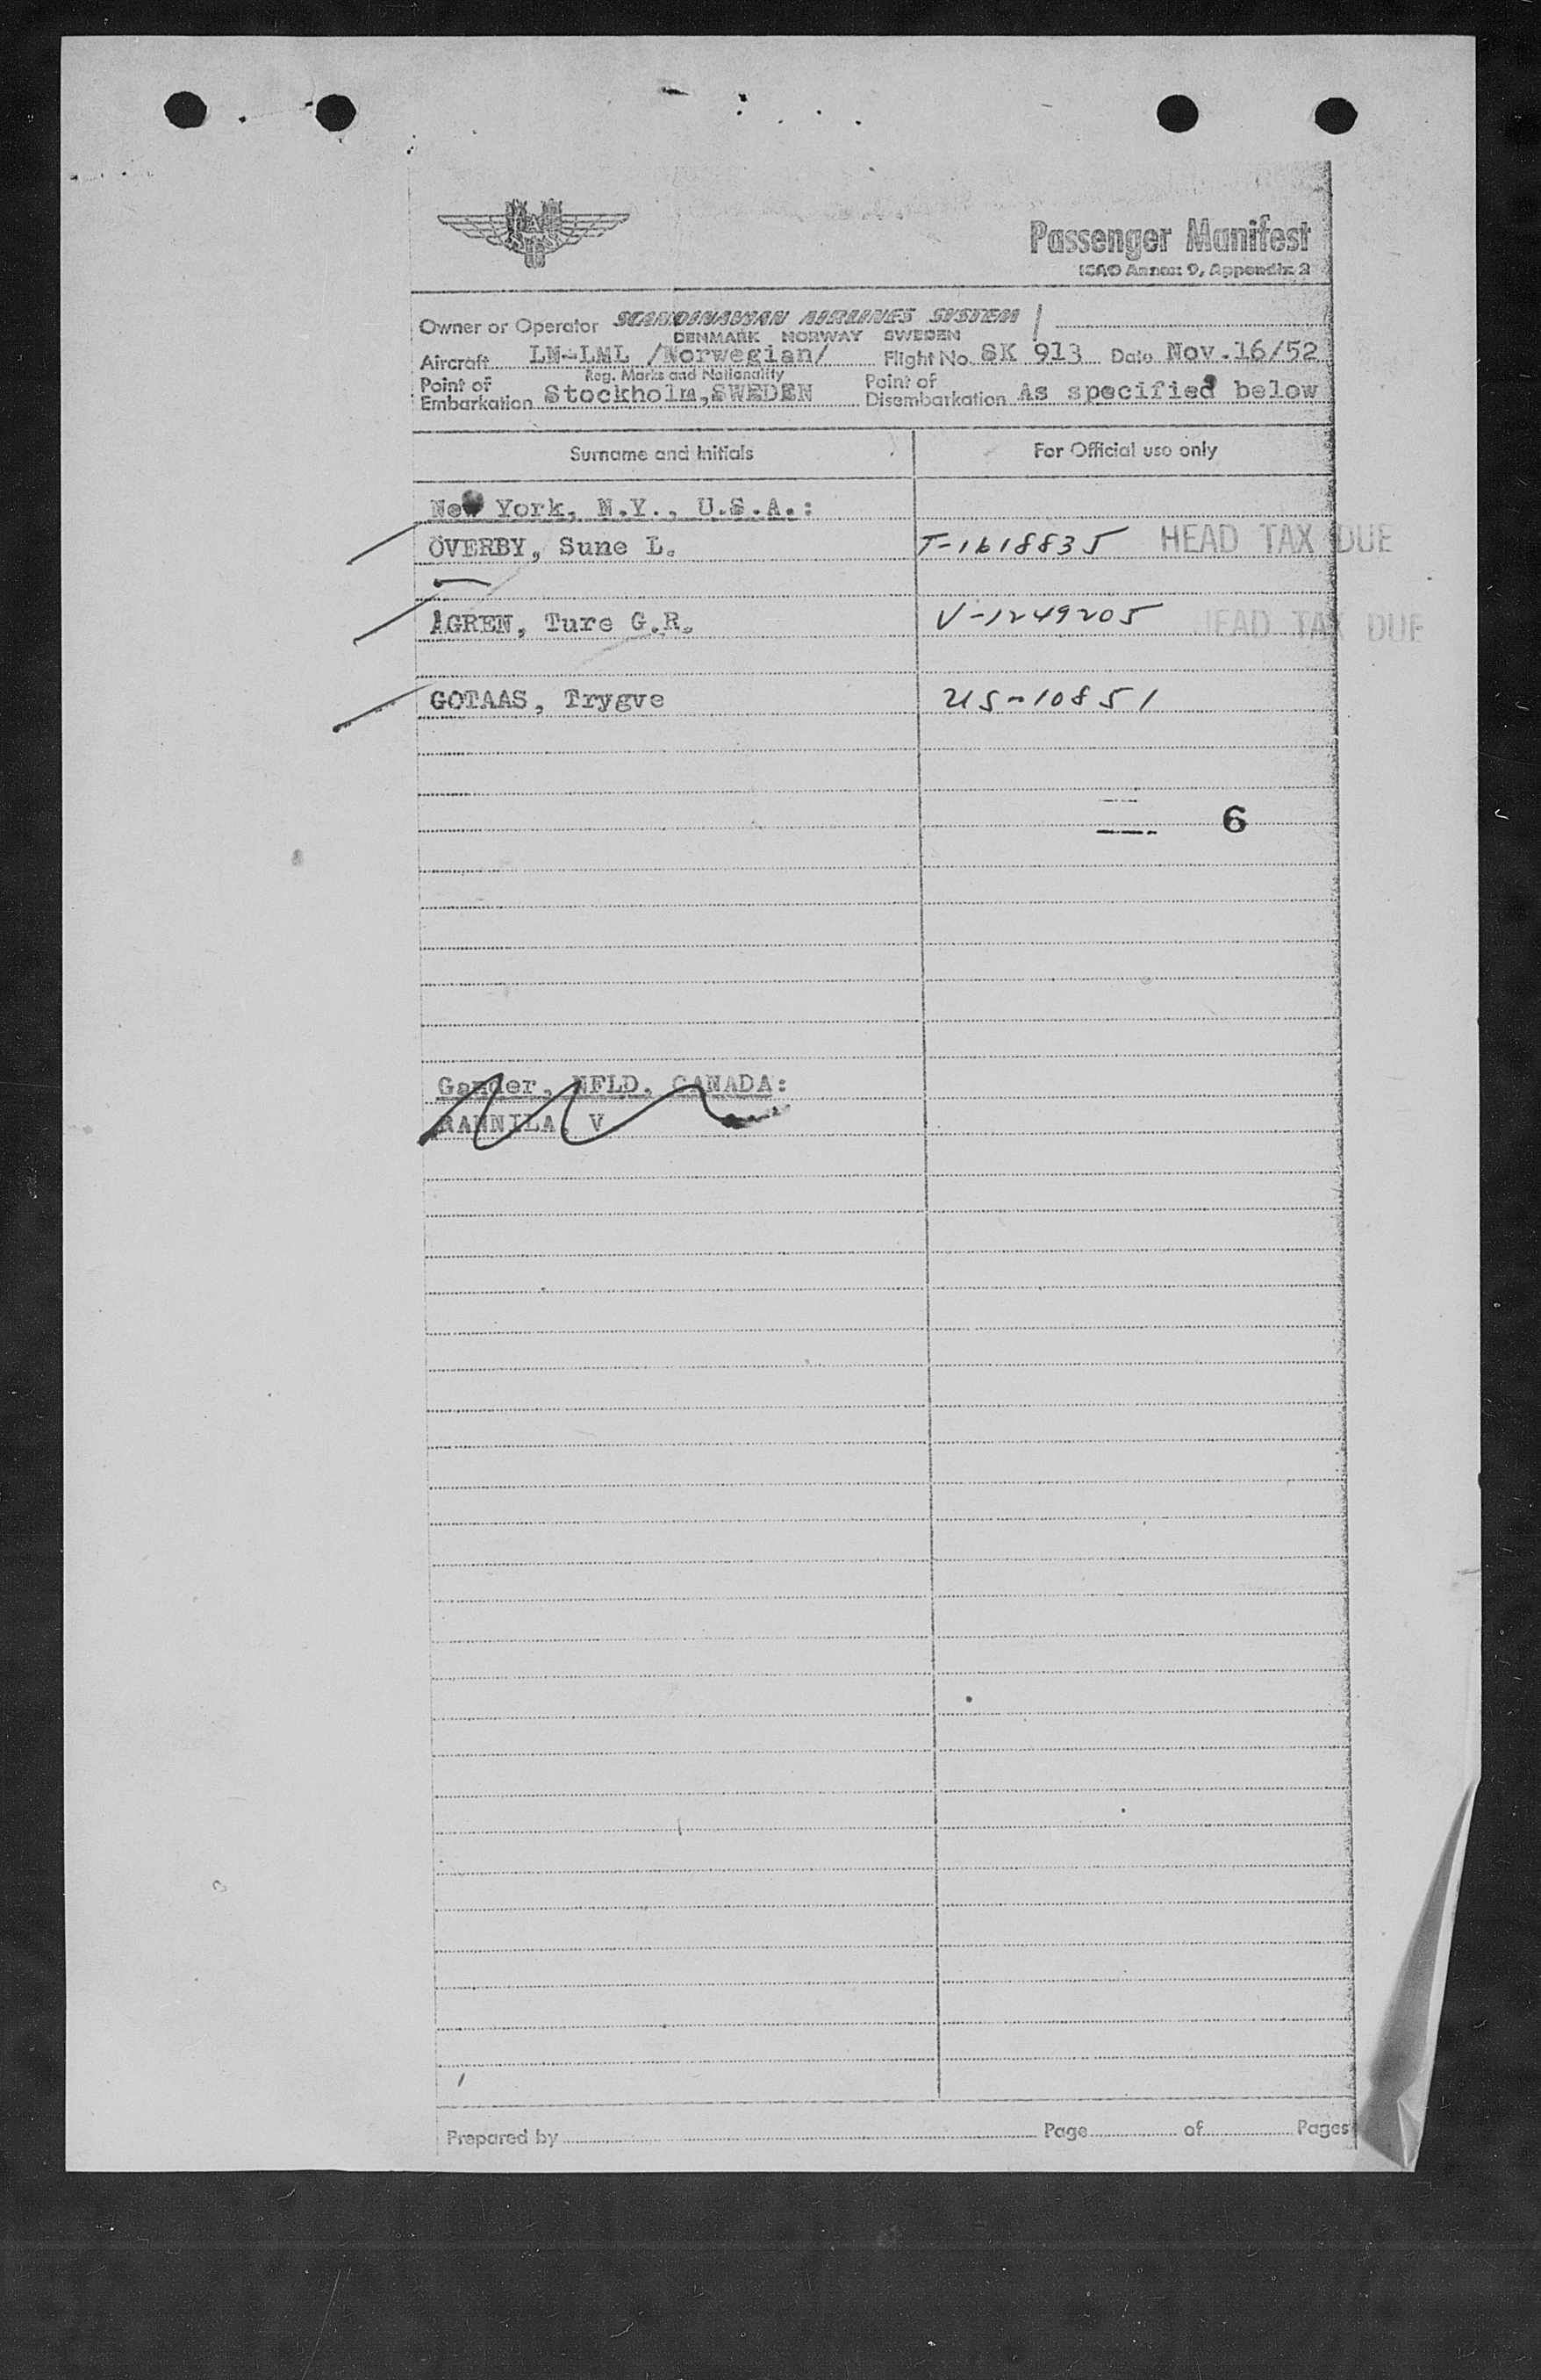 Passenger Manifest
ICAO Annex 9, Appendix 2
Owner or Operator SCANDINAVIAN AIRLINES SYSTEM
DENMARK NORWAY SWEDEN
Aircraft LN-LML /Norwegian/ Flight No. SK 913 Date Nov.16/52
Reg. Marks and Nationality
Point of Embarkation Stockholm,SWEDEN Point of Disembarkation As specified below
Surname and Initials For Official use only
New York, N.Y., U.S.A.:
ÖVERBY, Sune L. T-1618835 HEAD TAX DUE
ÅGREN, Ture G.R. V-1249205 HEAD TAX DUE
GOTAAS, Trygve US-10851
6
Gander, NFLD, CANADA:
RANNILA, V
Prepared by Page of Pages